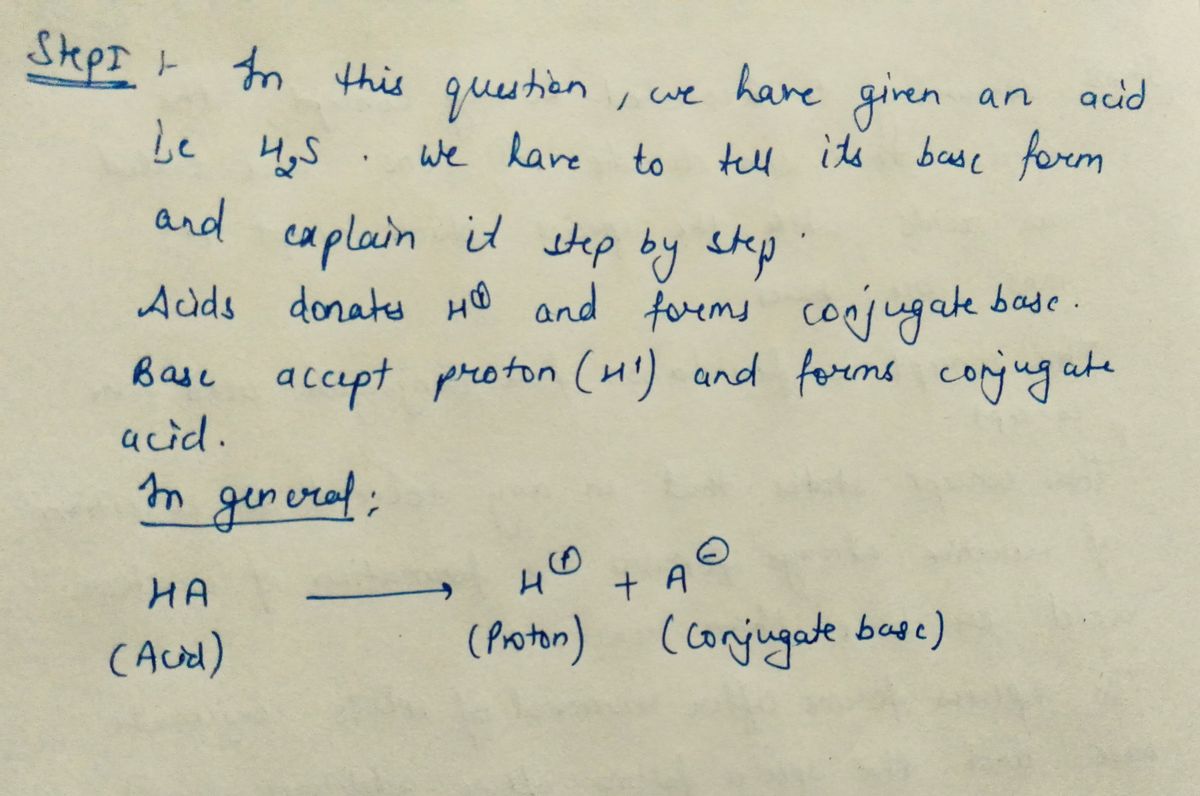 Step I :- In this question, we have given an acid
i.e H₂S. We have to tell its base form
and explain it step by step.
Acids donates H⊕ and forms conjugate base.
Base accept proton (H⁺) and forms conjugate
acid.
In general;
HA ⟶ H⊕ + A⊖
(Acid) (Proton) (Conjugate base)